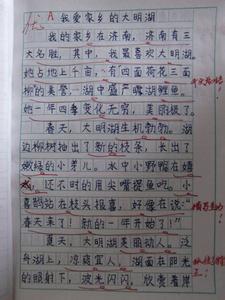 优 A 我爱家乡的大明湖
我的家乡在济南，济南有三
大名胜，其中，我最喜欢大明湖。
她占地上千亩，有四面荷花三面
柳的美誉，湖中盛产
她一年四季变化无穷，美丽极了。
春天，大明湖生机勃勃。湖
边柳树抽出了新的枝条，长出了
嫩绿的小芽儿。水中小野鸭在嬉
，还不时的用尖嘴捉鱼吃。小
喜鹊站在枝头报喜，好像在说：“
春天来了！新的一年开始了！”
夏天，大明湖美丽动人。泛
舟湖上，凉爽宜人。湖面在阳光
的照射下，波光闪闪，欣赏着岸